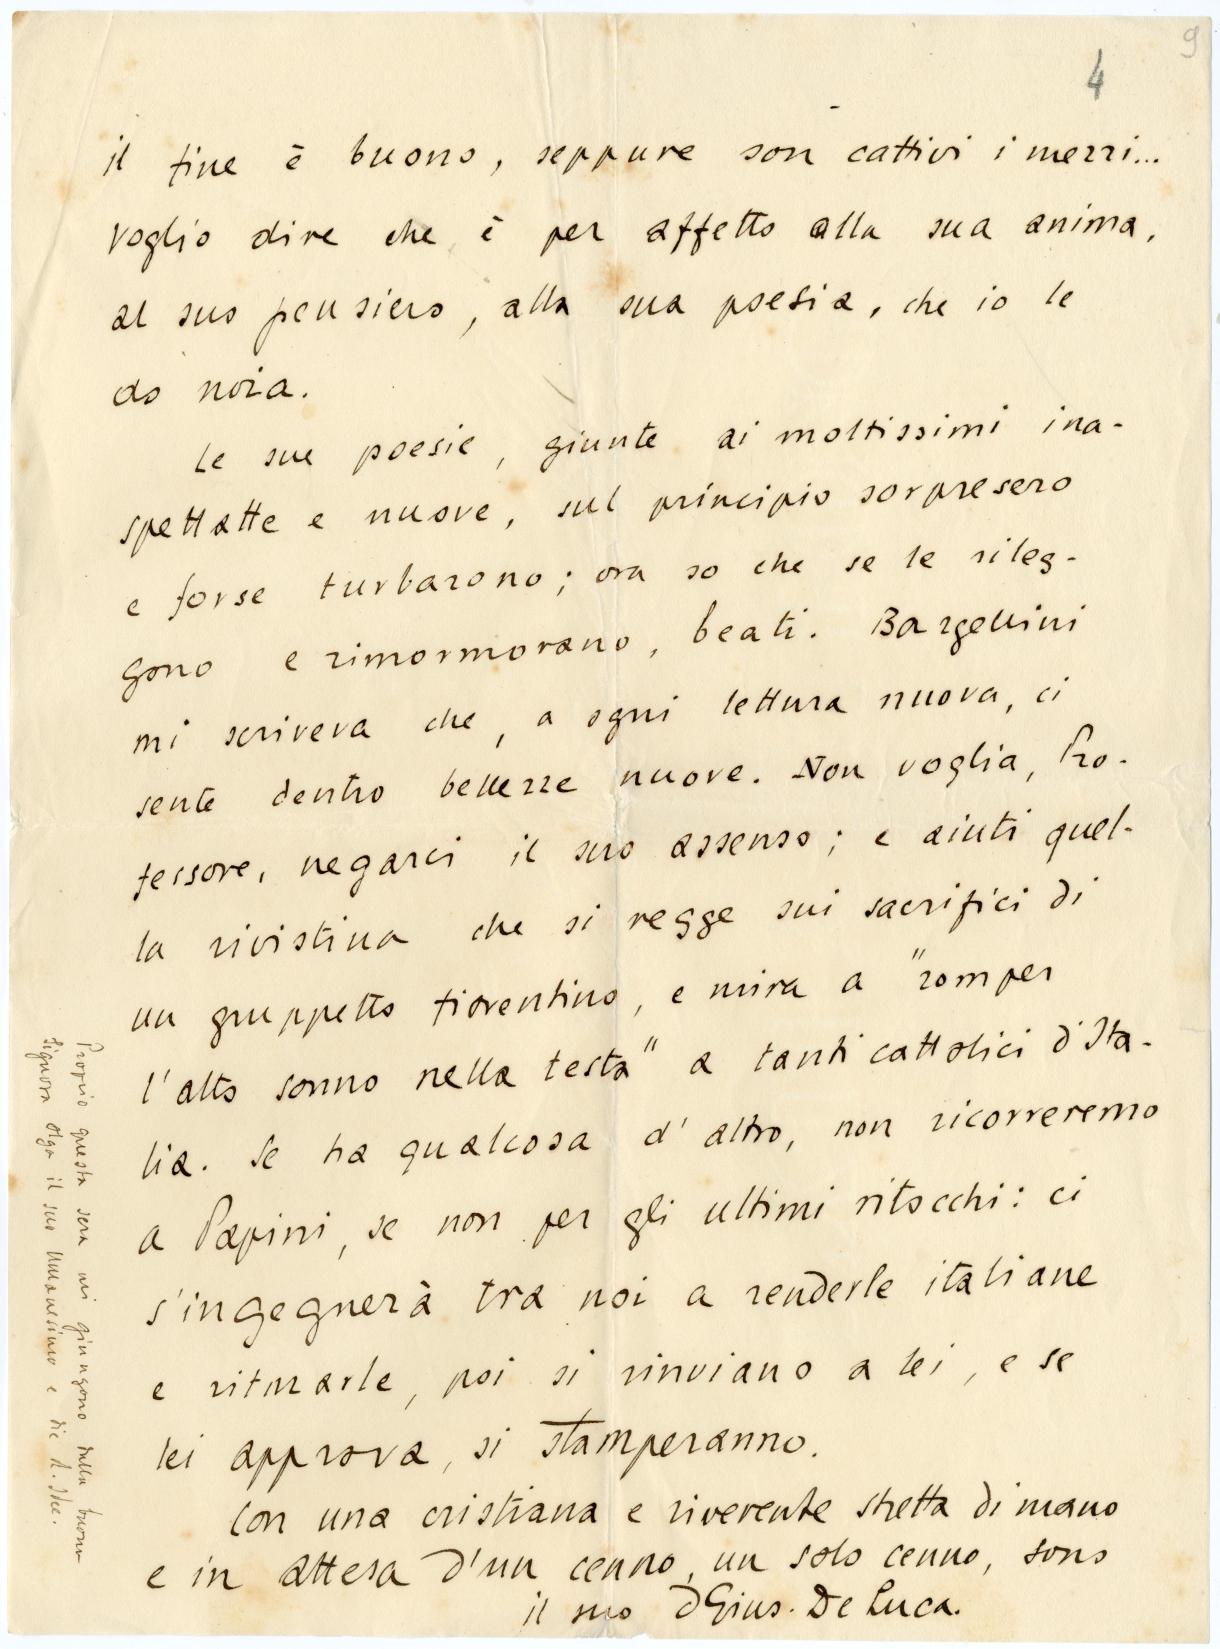 9
4
il fine è buono, seppure son cattivi i mezzi...
voglio dire che è per affetto alla sua anima,
al suo pensiero, alla sua poesia, che io le
do noia.
Le sue poesie, giunte ai moltissimi ina-
spettatte e nuove, sul principio sorpresero
e forse turbarono; ora so che se le rileg-
gono e rimormorano, beati. Bargellini
mi scriveva che, a ogni lettura nuova, ci
sente dentro bellezze nuove. Non voglia, Pro-
fessore, negarci il suo assenso; e aiuti quel-
la rivistina che si regge sui sacrifici di
un gruppetto fiorentino, e mira a "romper
l'alto sonno nella testa" a tanti cattolici d'Ita-
lia. Se ha qualcosa d'altro, non ricorreremo
a Papini, se non per gli ultimi ritocchi: ci
s'ingegnerà tra noi a renderle italiane
e ritmarle, poi si rinviano a lei, e se
lei approva, si stamperanno.
Con una cristiana e riverente stretta di mano
e in attesa d'un cenno, un solo cenno, sono
il suo dGius. De Luca.
Proprio questa sera mi giungono dalla buona
Signora Olga il suo e die